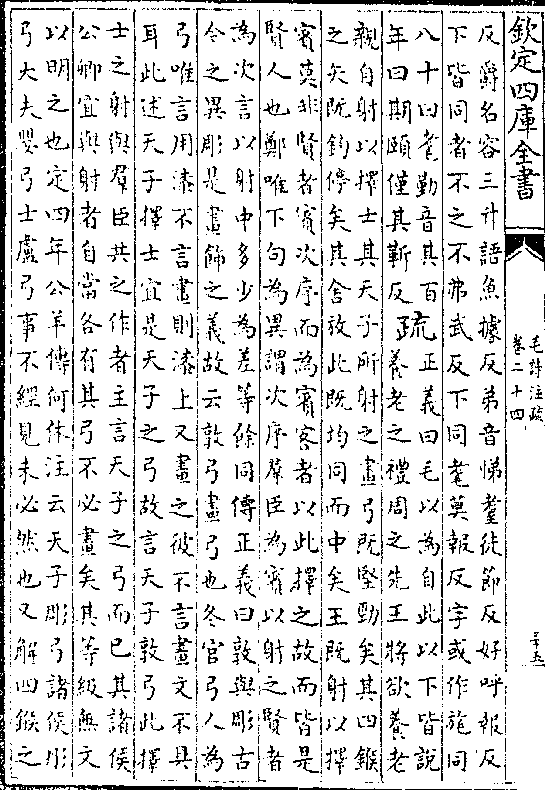 欽定四庫全書
毛詩注疏
卷二十四
三十五
反爵名容三升語魚據反弟音悌耋徒節反好呼報反
下皆同者不之不弗武反下同耄莫報反字或作旄同
八十曰耄勤音其百
年曰期頤僅其靳反疏正義曰毛以為自此以下皆說
養老之禮周之先王將欲養老
親自射以擇士其天子所射之畫弓既堅勁矣其四鍭
之矢既鈞停矣其舍放此既均同而中矣王既射以擇
賓莫非賢者賓次序而為賓客者以此擇之故而皆是
賢人也鄭唯下句為異謂次序羣臣為賓以射之賢者
為次言以射中多少為差等餘同傳正義曰敦與彫古
今之異彫是畫飾之義故云敦弓畫弓也冬官弓人為
弓唯言用漆不言畫則漆上又畫之彼不言畫文不具
耳此述天子擇士宜是天子之弓故言天子敦弓此擇
士之射與羣臣共之作者主言天子之弓而已其諸侯
公卿宜與射者自當各有其弓不必畫矣其等級無文
以明之也定四年公羊傳何休注云天子彫弓諸侯彤
弓大夫嬰弓士盧弓事不經見未必然也又解四鍭之